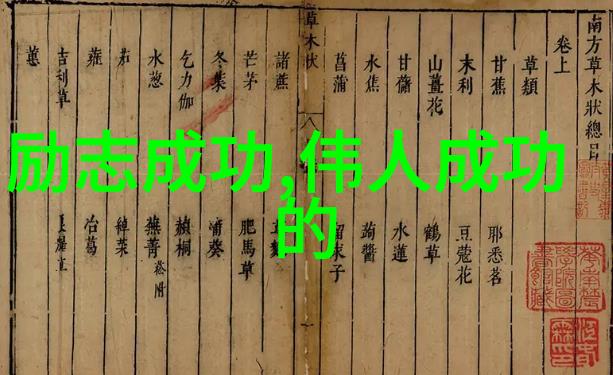 励志成功,伟人成功
的
南方草木狀總目
卷上
草類
甘蕉 耶悉茗
末利 豆蔻花
山薑花 鶴草
甘藷 水蓮
水蕉 蒟醬
菖蒲 留求子
草木狀 八
諸蔗
芒茅 肥馬草
冬葉 蒲葵
乞力伽 赬桐
水葱 蕪菁 菘附
茄 綽菜
蕹 冶葛
吉利草
蕙